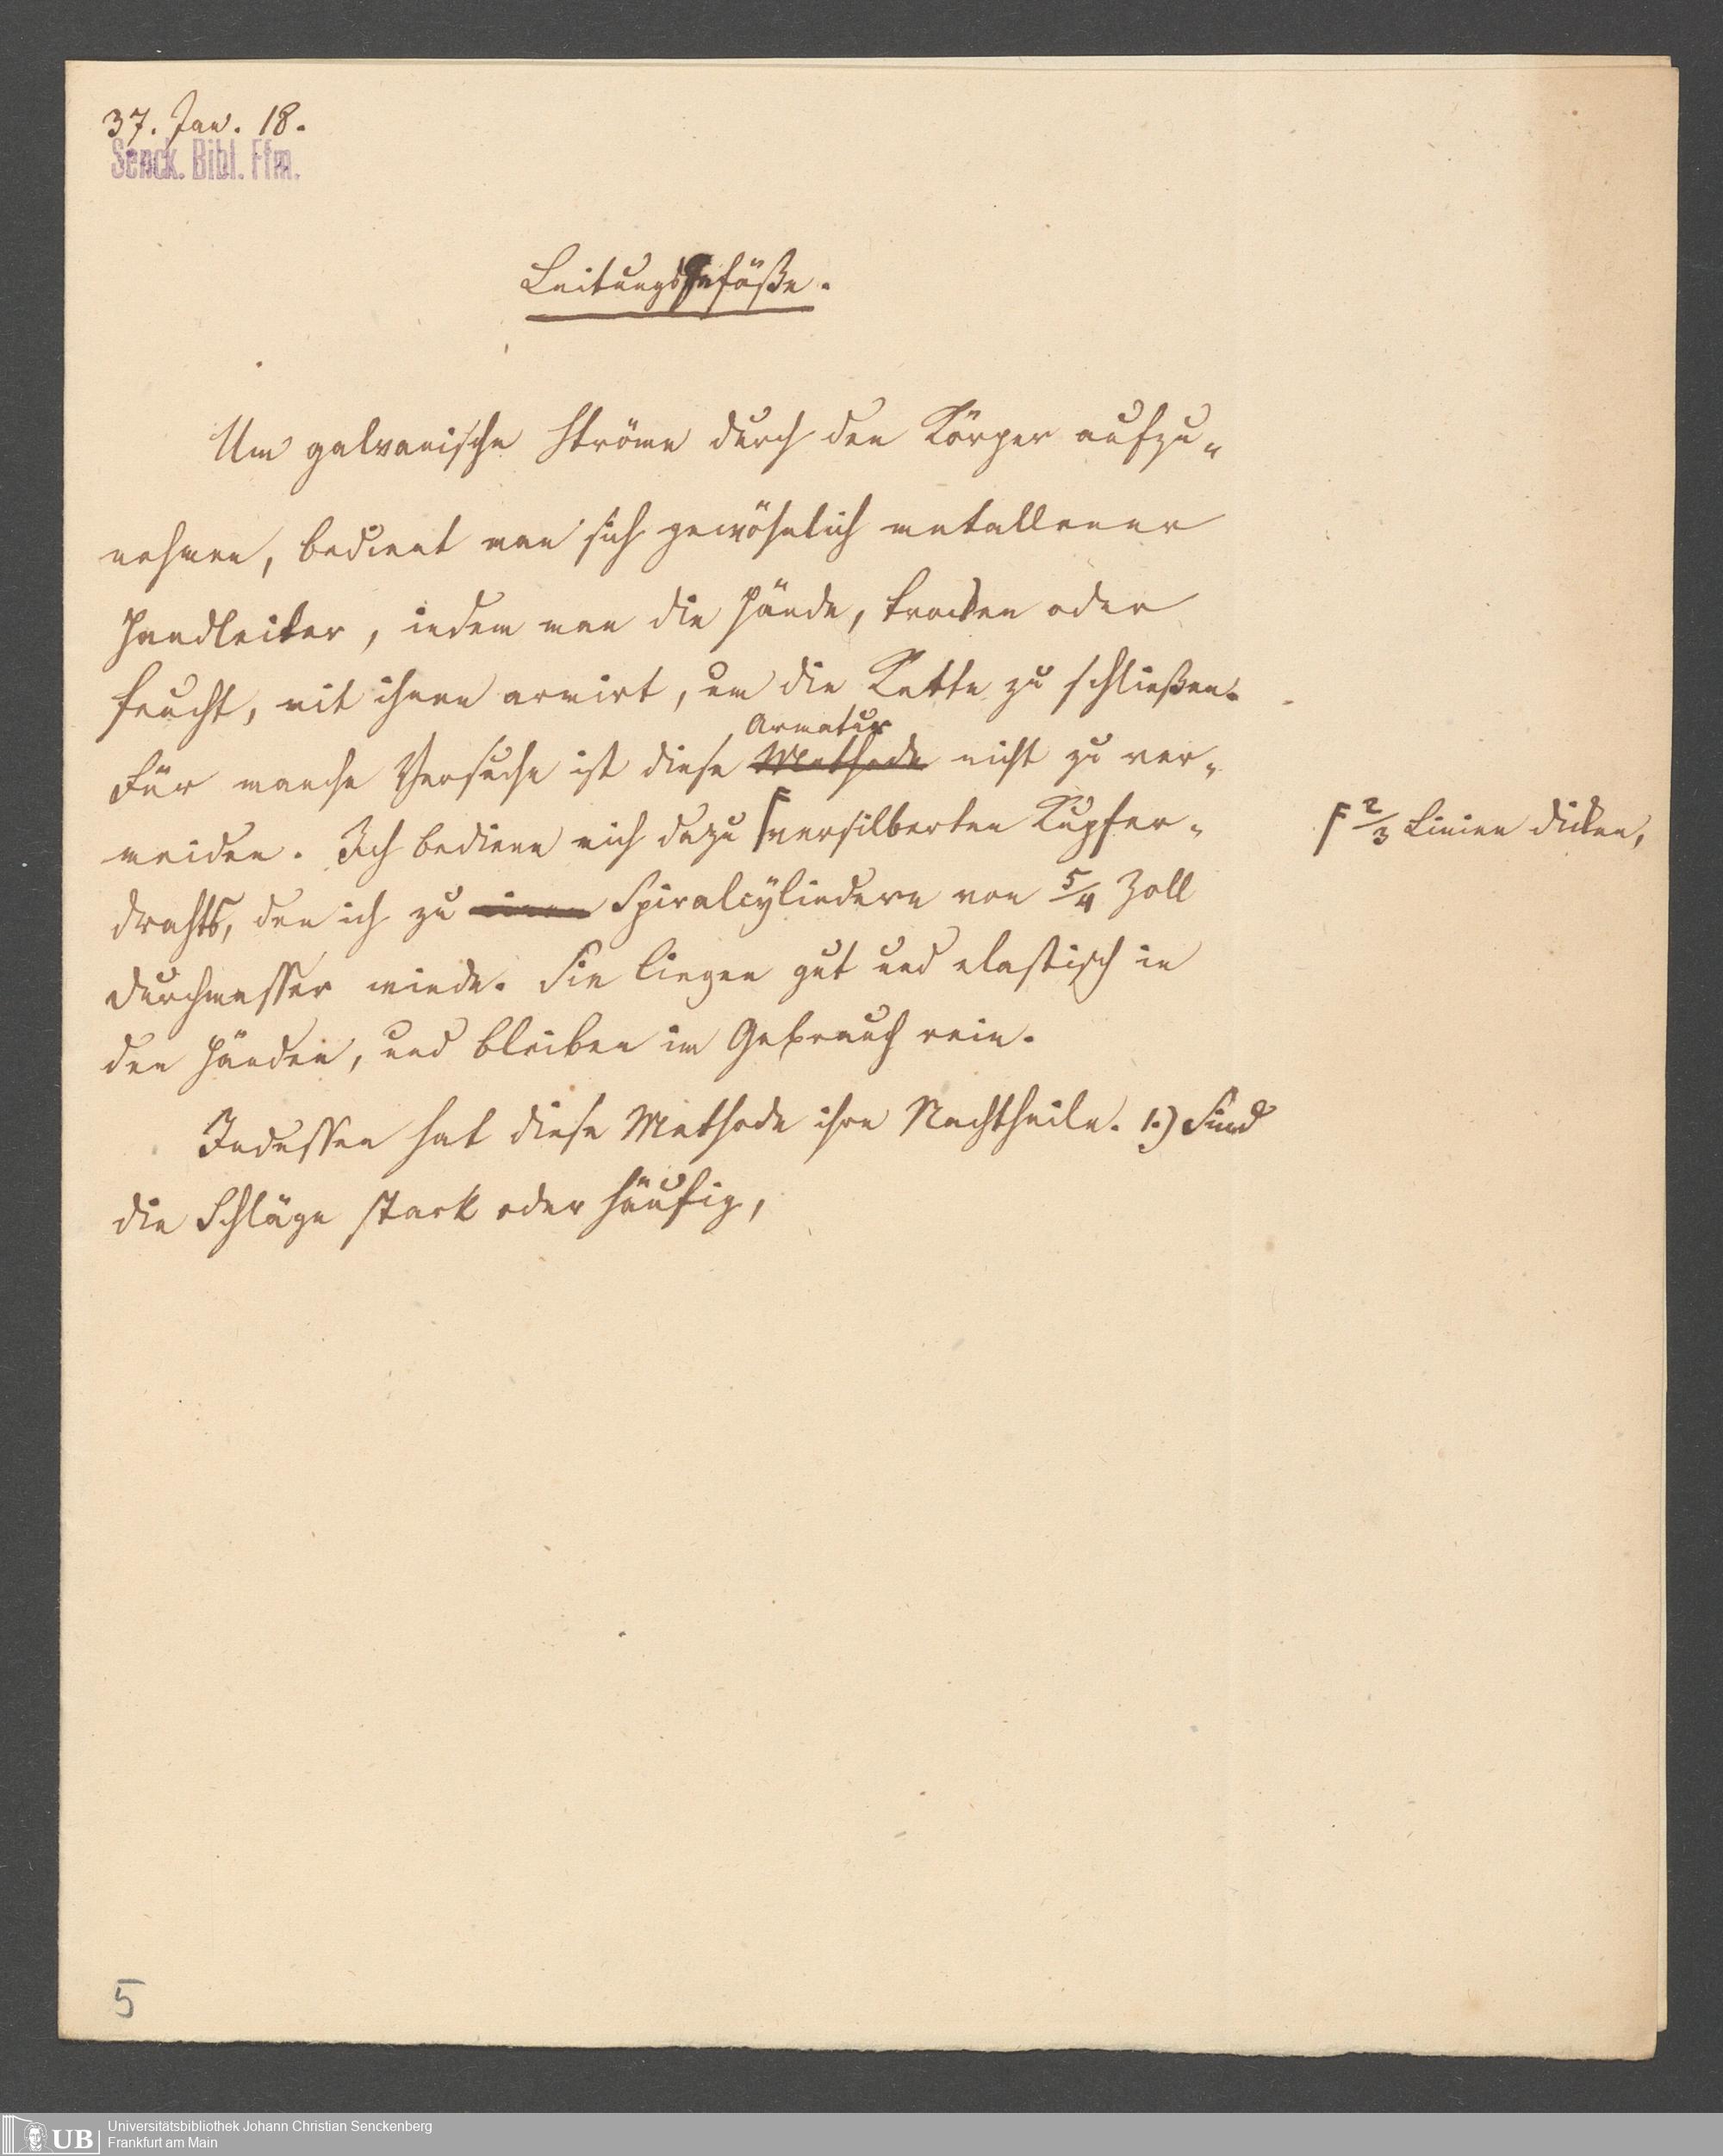 37. Jan. 18.
Senck. Bibl. Ffm.
Leitungsgefäße.
Um galvanische Ströme durch den Körper aufzu-
nehmen, bedient man sich gewöhnlich metallener
Handleiter, indem man die Hände, trocken oder
feucht, mit ihnen armirt, um die Kette zu schließen.
Armatur
Für manche Versuche ist diese Methode nicht zu ver-
meiden. Ich bediene mich dazu ⌈versilberten Kupfer-
⌈ 2/3 Linien dicken,
drahts, den ich zu einen Spiralcylindern von 5/4 Zoll
Durchmesser winde. Sie liegen gut und elastisch in
den Händen, und bleiben im Gebrauch rein.
Indessen hat diese Methode ihre Nachtheile. 1.) Sind
die Schläge stark oder häufig,
5
UB
Universitätsbibliothek Johann Christian Senckenberg
Frankfurt am Main